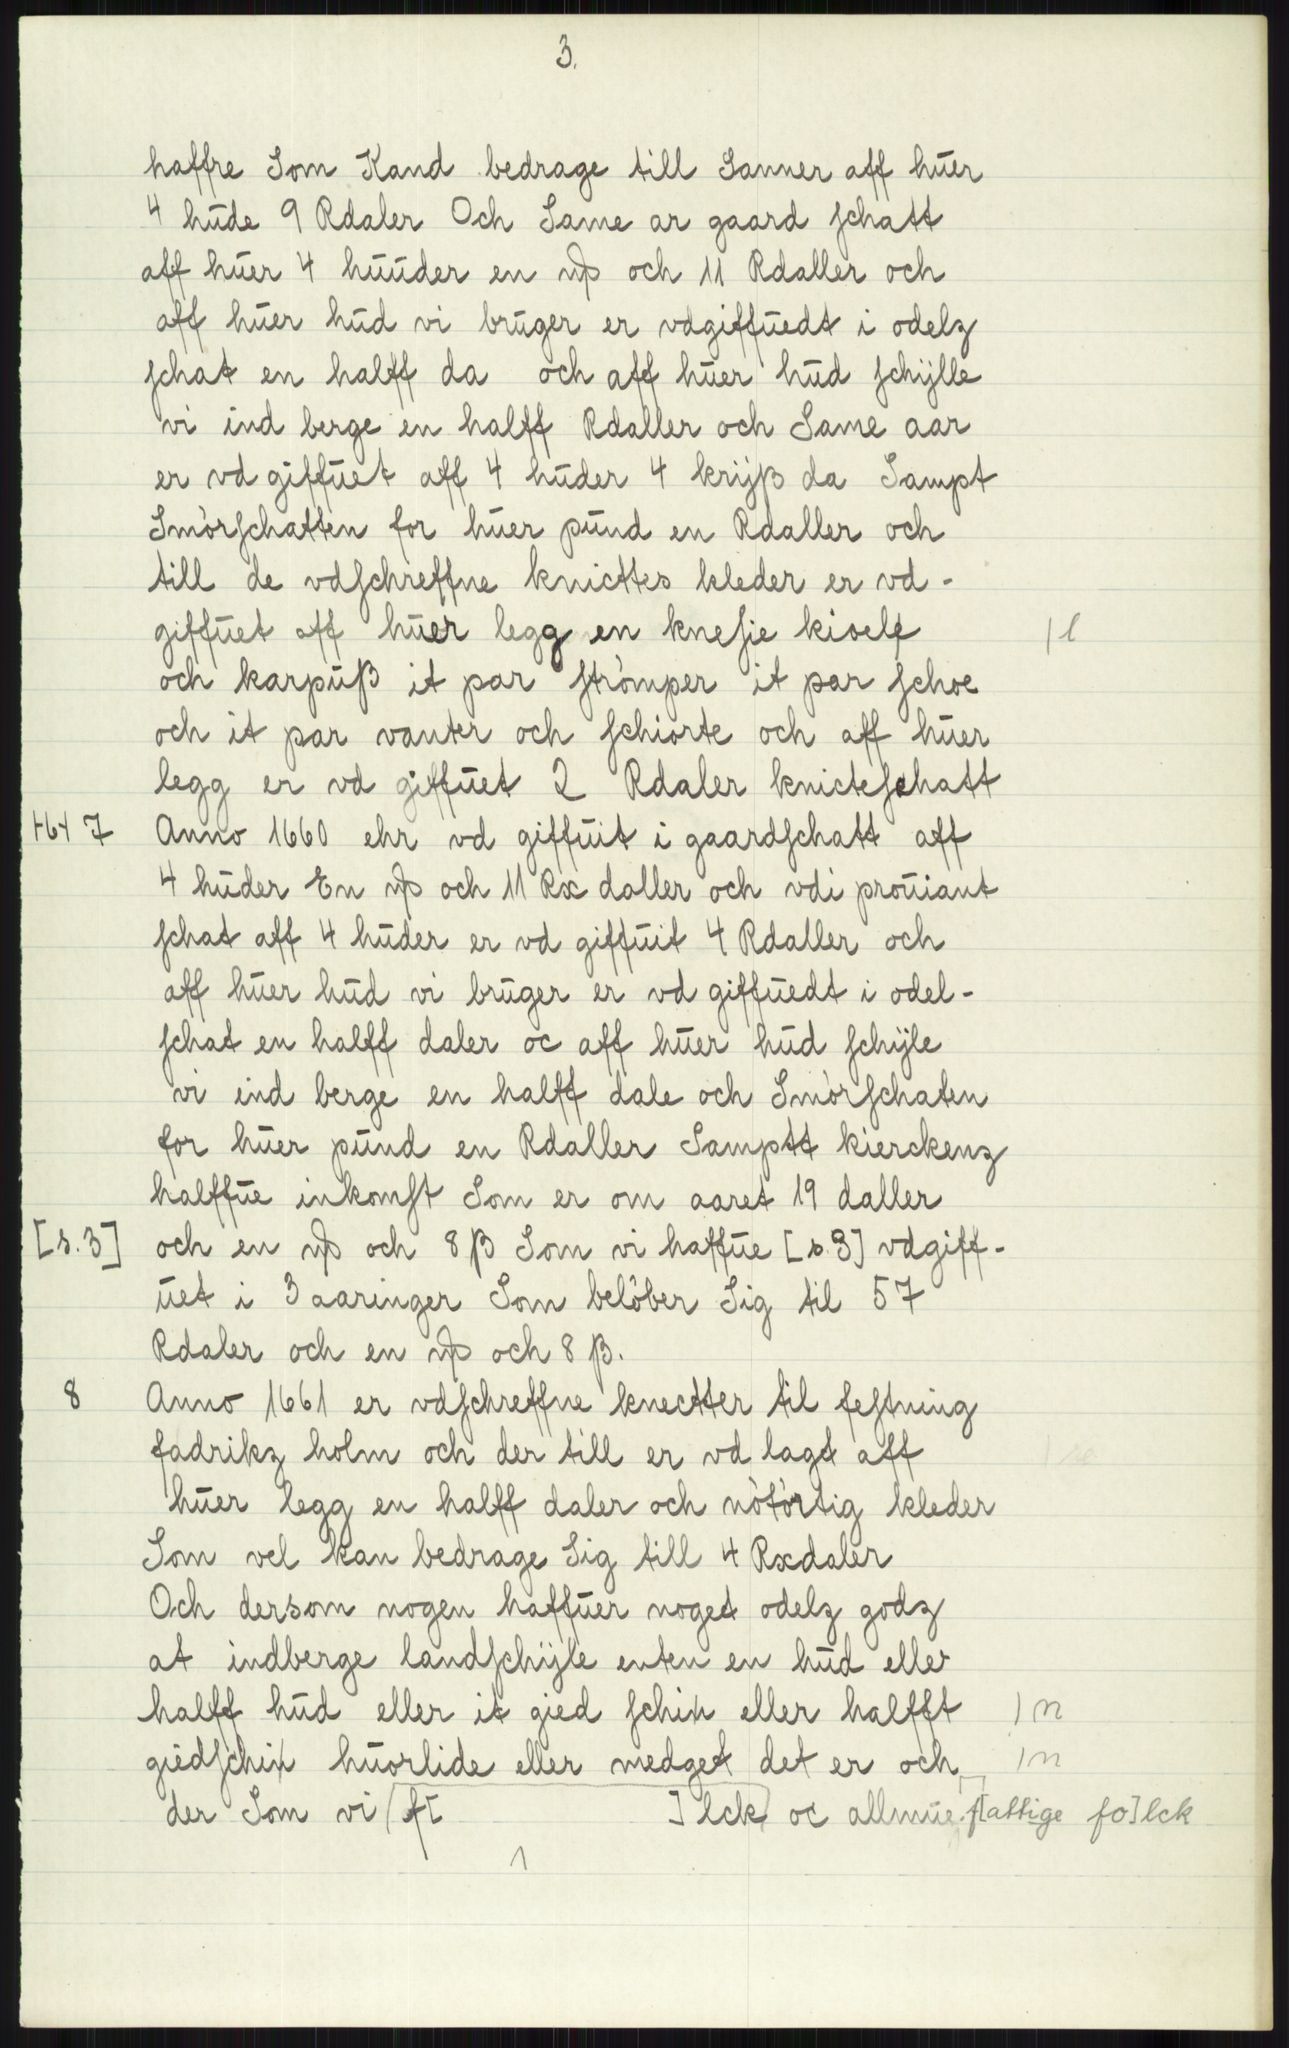 3.
haffre Som Kand bedrage till Sanner aff huer
4 hude 9 Rdaler Och Same ar gaard schatt
aff huer 4 huuder en mß och 11 Rdaller och
aff huer hud vi bruger er vdgiffuedt i odelz
schat en halff da och aff huer hud schylle
vi ind berge en halff Rdaller och Same aar
er vd giffuet aff 4 huder 4 kryß da Sampt
Smörschatten for huer pund en Rdaller och
till de vdschreffne knicttes kleder er vd-
giffuet aff huer legg en knesie kiole |l
och karpuß it par strömper it par schoe
och it par vanter och schiorte och aff huer
legg er vd giffuet 2 Rdaler knicteschatt
7 Anno 1660 ehr vd giffuit i gaardschatt aff
4 huder En mß och 11 Rx daller och vdi prouiant
schat aff 4 huder er vd giffuit 4 Rdaller och
aff huer hud vi bruger er vd giffuedt i odel-
schat en halff daler oc aff huer hud schyle
vi ind berge en halff dale och Smörschaten
for huer pund en Rdaller Samptt kierckenz
halffue inkomst Som er om aaret 19 daller
[s.3] och en mß och 8 ß Som vi haffue [s.3] vdgiff-
uet i 3 aaringer Som belöber Sig til 57
Rdaler och en mß och 8 ß.
8 Anno 1661 er vdschreffne knectter til festning
fadrikz holm och der till er vd lagt aff
huer legg en halff daler och nötörtig kleder
Som vel kan bedrage Sig till 4 Rxdaler
Och dersom nogen haffuer noget odelz godz
at indberge landschyle enten en hud eller
halff hud eller it gied schin eller halfft |n
giedschin huorlide eller medget det er och |n
der Som vi f[ ]lck oc allmue f[attige fo]lck